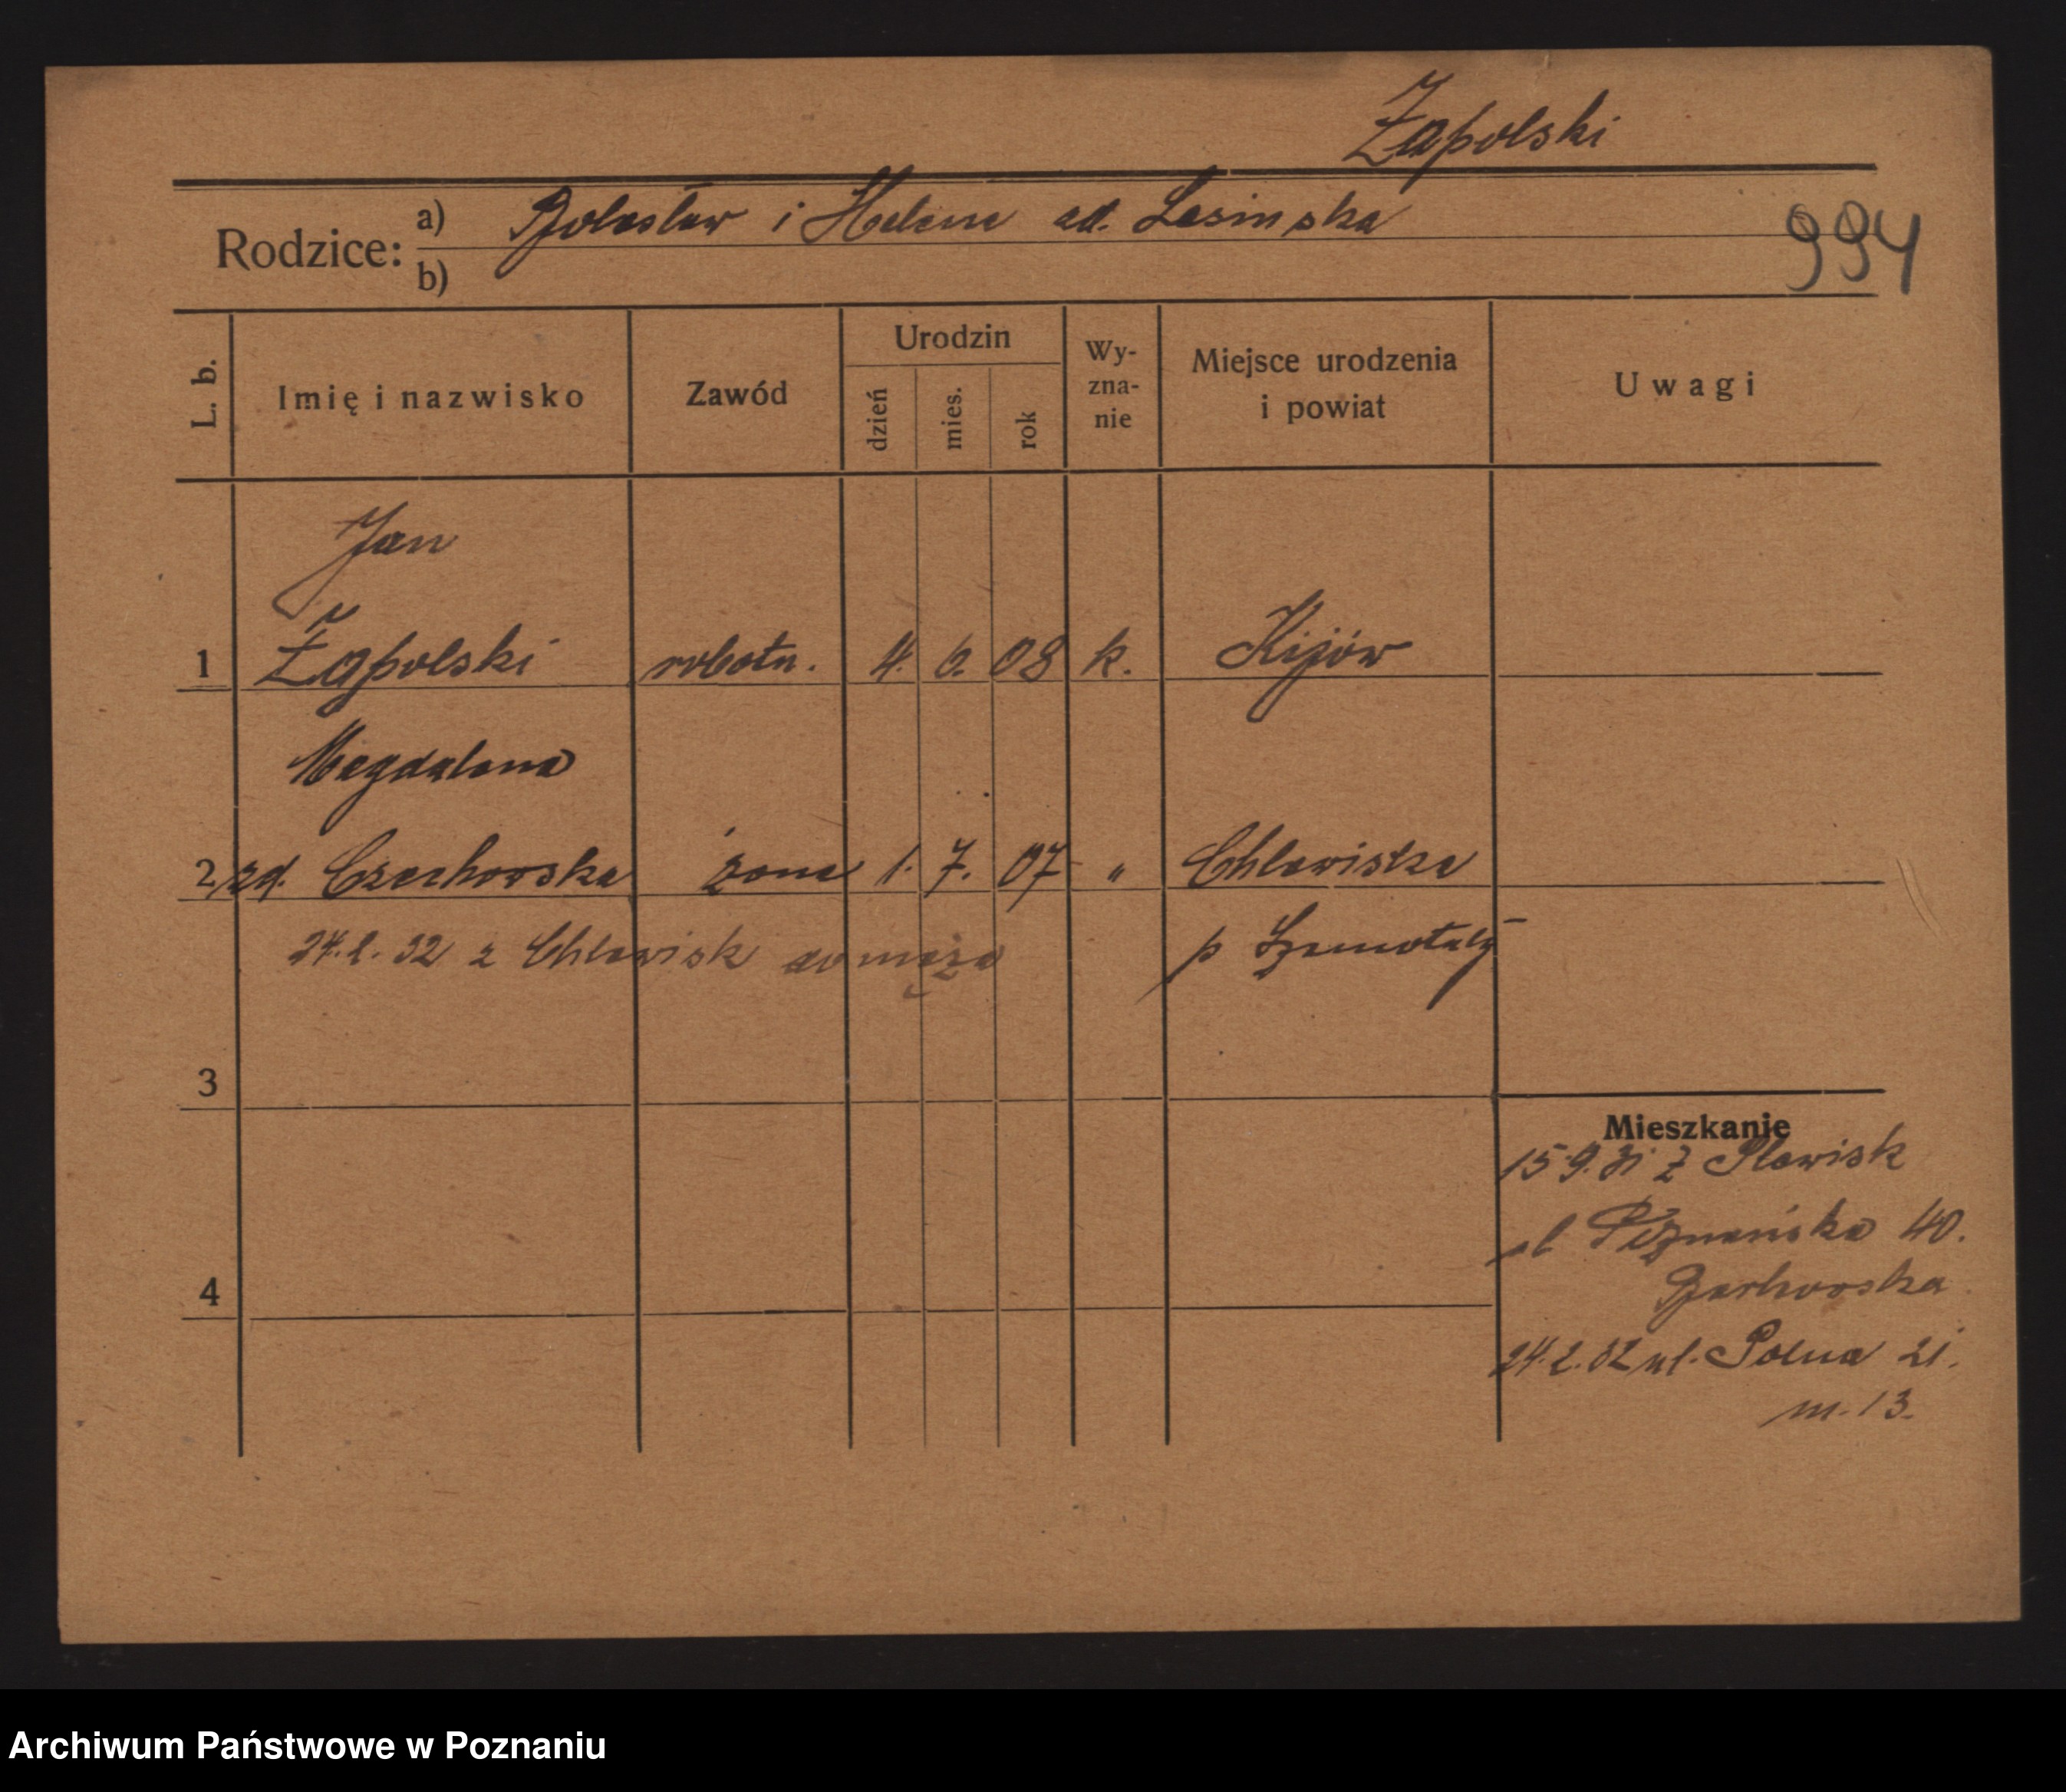 Żapolski
Rodzice: a) Bolesław i Helena zd. Lesinska
b)
994
L. b.
Imię i nazwisko
Zawód
Urodzin
dzień
mies.
rok
Wy-
zna-
nie
Miejsce urodzenia
i powiat
Uwagi
Jan
1 Żapolski robotn. 4. 6. 08 k. Kijów
Magdalena
2 zd. Czechowska żona 1. 7. 07 " Chlewiska
24.2.32 z Chlewisk do męża p Szamotuły
3
Mieszkanie
15.9.31 z
ul Poznańska 40.
4
24.2.32 ul. Polna 21.
m. 13.
Archiwum Państwowe w Poznaniu